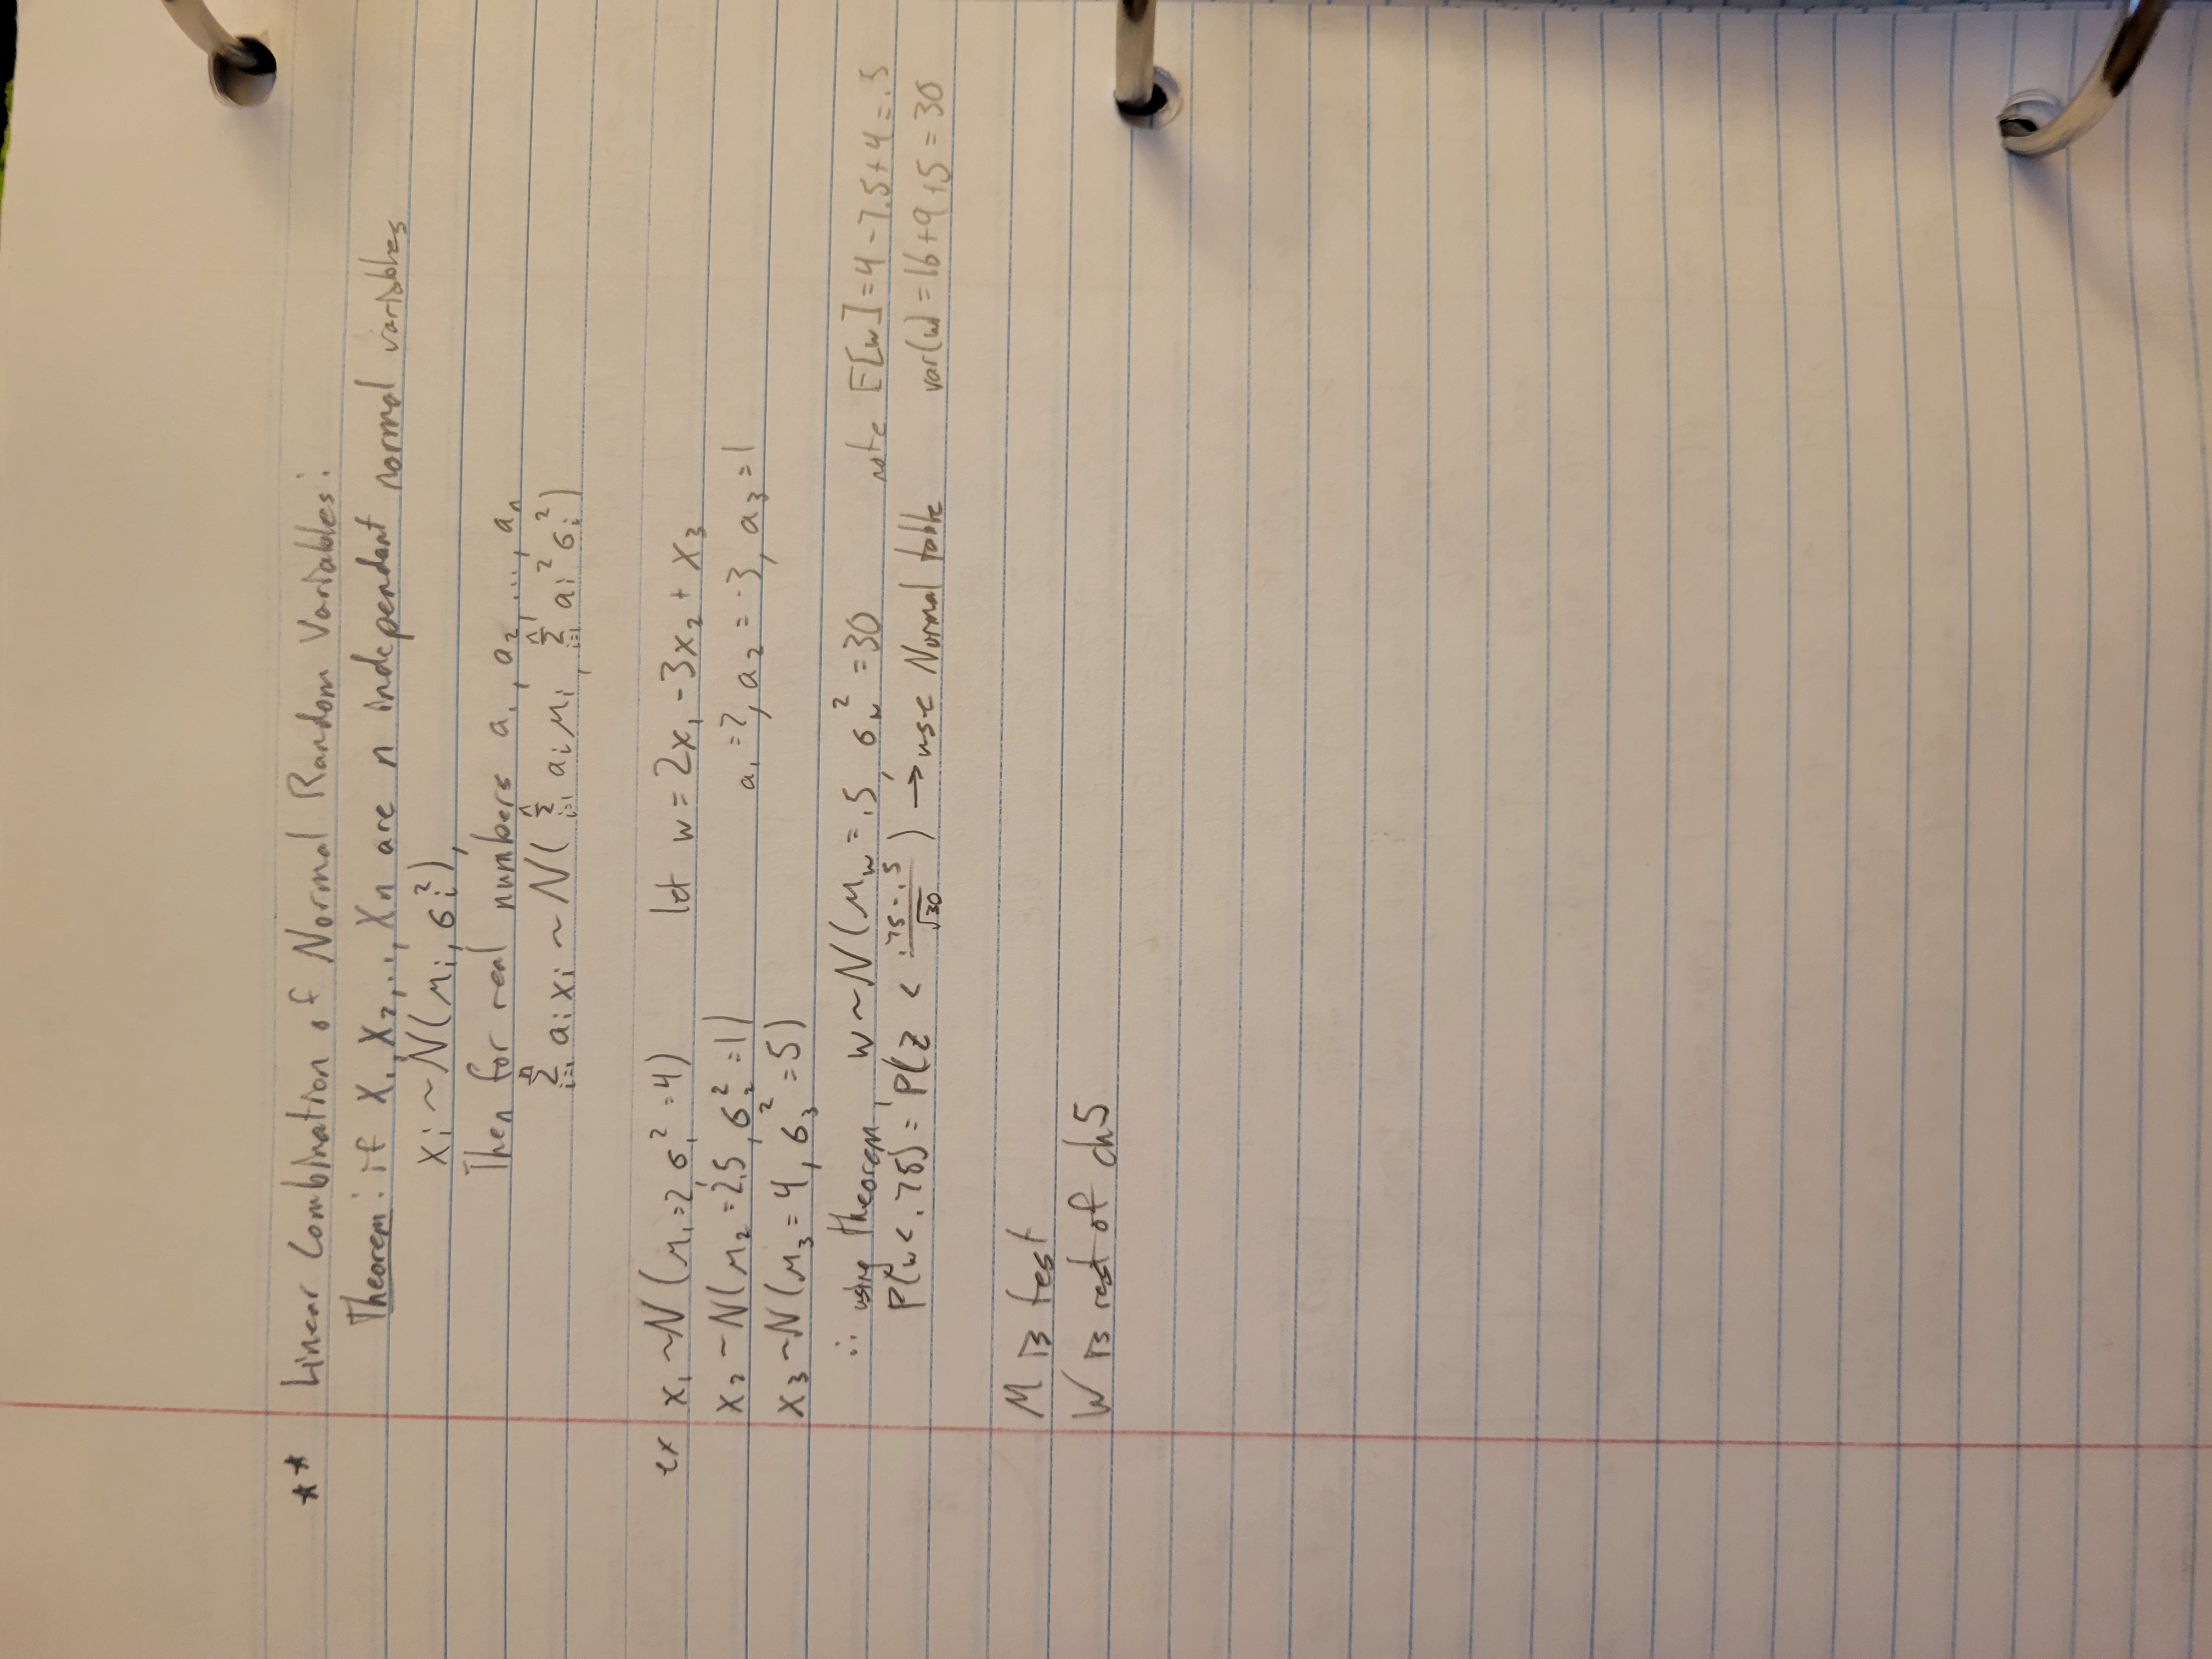 ** Linear Combination of Normal Random Variables:
Theorem: if X₁, X₂, ..., Xn are n independant normal variables
xᵢ ~ N(μᵢ, σᵢ²),
Then for real numbers a₁, a₂, ..., aₙ
∑ᵢ₌₁ⁿ aᵢxᵢ ~ N(∑ᵢ₌₁ⁿ aᵢμᵢ, ∑ᵢ₌₁ⁿ aᵢ²σᵢ²)
ex x₁ ~ N(μ₁=2, σ₁²=4) let w = 2x₁ - 3x₂ + x₃
x₂ ~ N(μ₂=2.5, σ₂²=1) a₁=2, a₂=-3, a₃=1
x₃ ~ N(μ₃=4, σ₃²=5)
∴ using theorem, w ~ N(μw = .5, σw² = 30 note E[w] = 4 - 7.5 + 4 = .5
P(w < .75) = P(Z < (.75 - .5)/√30) → use Normal table var(w) = 16 + 9 + 5 = 30
M is test
W is rest of ch5